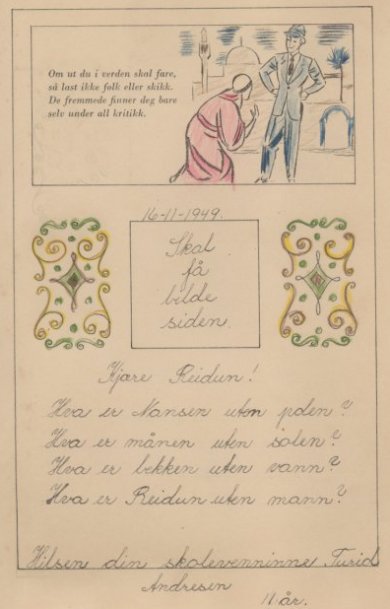 Om ut du i verden skal fare,
så last ikke folk eller skikk.
De fremmede finner deg bare
selv under all kritikk.
16-11-1949.
Skal
få
bilde
siden.
Kjære Reidun!
Hva er Nansen uten polen?
Hva er månen uten solen?
Hva er bekken uten vann?
Hva er Reidun uten mann?
Hilsen din skolevenninne Turid
Andresen
11 år.